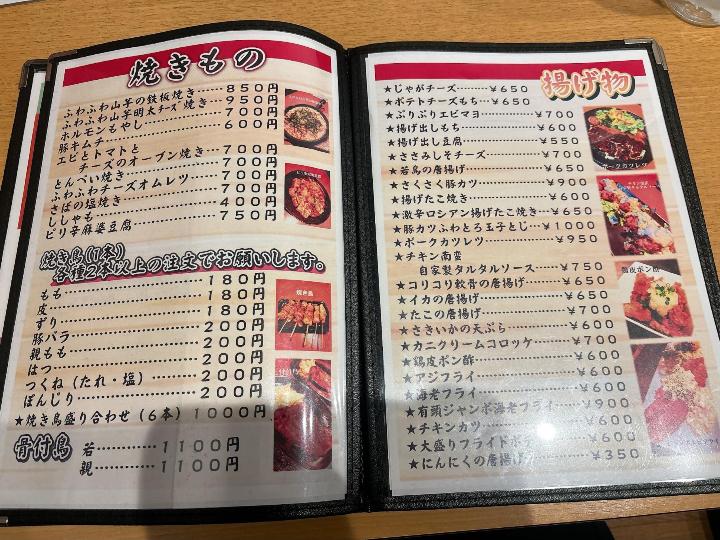 焼きもの
ふわふわ山芋の鉄板焼き…850円
ふわふわ山芋明太チーズ焼き…950円
ホルモンもやし…700円
豚キムチ…600円
エビとトマトと
チーズのオーブン焼き…700円
とんぺい焼き…700円
ふわふわチーズオムレツ…700円
さばの塩焼き…700円
ししゃも…400円
ピリ辛麻婆豆腐…750円
焼き鳥(1本)
各種2本以上の注文でお願いします。
もも…180円
皮…180円
ずり…180円
豚バラ…200円
親もも…200円
はつ…200円
つくね(たれ・塩)…200円
ぼんじり…200円
★焼き鳥盛り合わせ(6本)1000円
骨付鳥
若…1100円
親…1100円
焼き鳥
揚げ物
★じゃがチーズ…¥650
★ポテトチーズもち…¥650
★ぷりぷりエビマヨ…¥700
★揚げ出しもち…¥600
★揚げ出し豆腐…¥550
★ささみしそチーズ…¥700
★若鳥の唐揚げ…¥650
★さくさく豚カツ…¥900
★揚げたこ焼き…¥600
★激辛ロシアン揚げたこ焼き…¥650
★豚カツふわとろ玉子とじ…¥1000
★ポークカツレツ…¥950
★チキン南蛮
自家製タルタルソース…¥750
★コリコリ軟骨の唐揚げ…¥650
★イカの唐揚げ…¥650
★たこの唐揚げ…¥700
★さきいかの天ぷら…¥600
★カニクリームコロッケ…¥700
★鶏皮ポン酢…¥600
★アジフライ…¥600
★海老フライ…¥600
★有頭ジャンボ海老フライ…¥900
★チキンカツ…¥600
★大盛りフライドポテ…¥600
★にんにくの唐揚げ…¥350
ポークカツレツ
鶏皮ポン酢